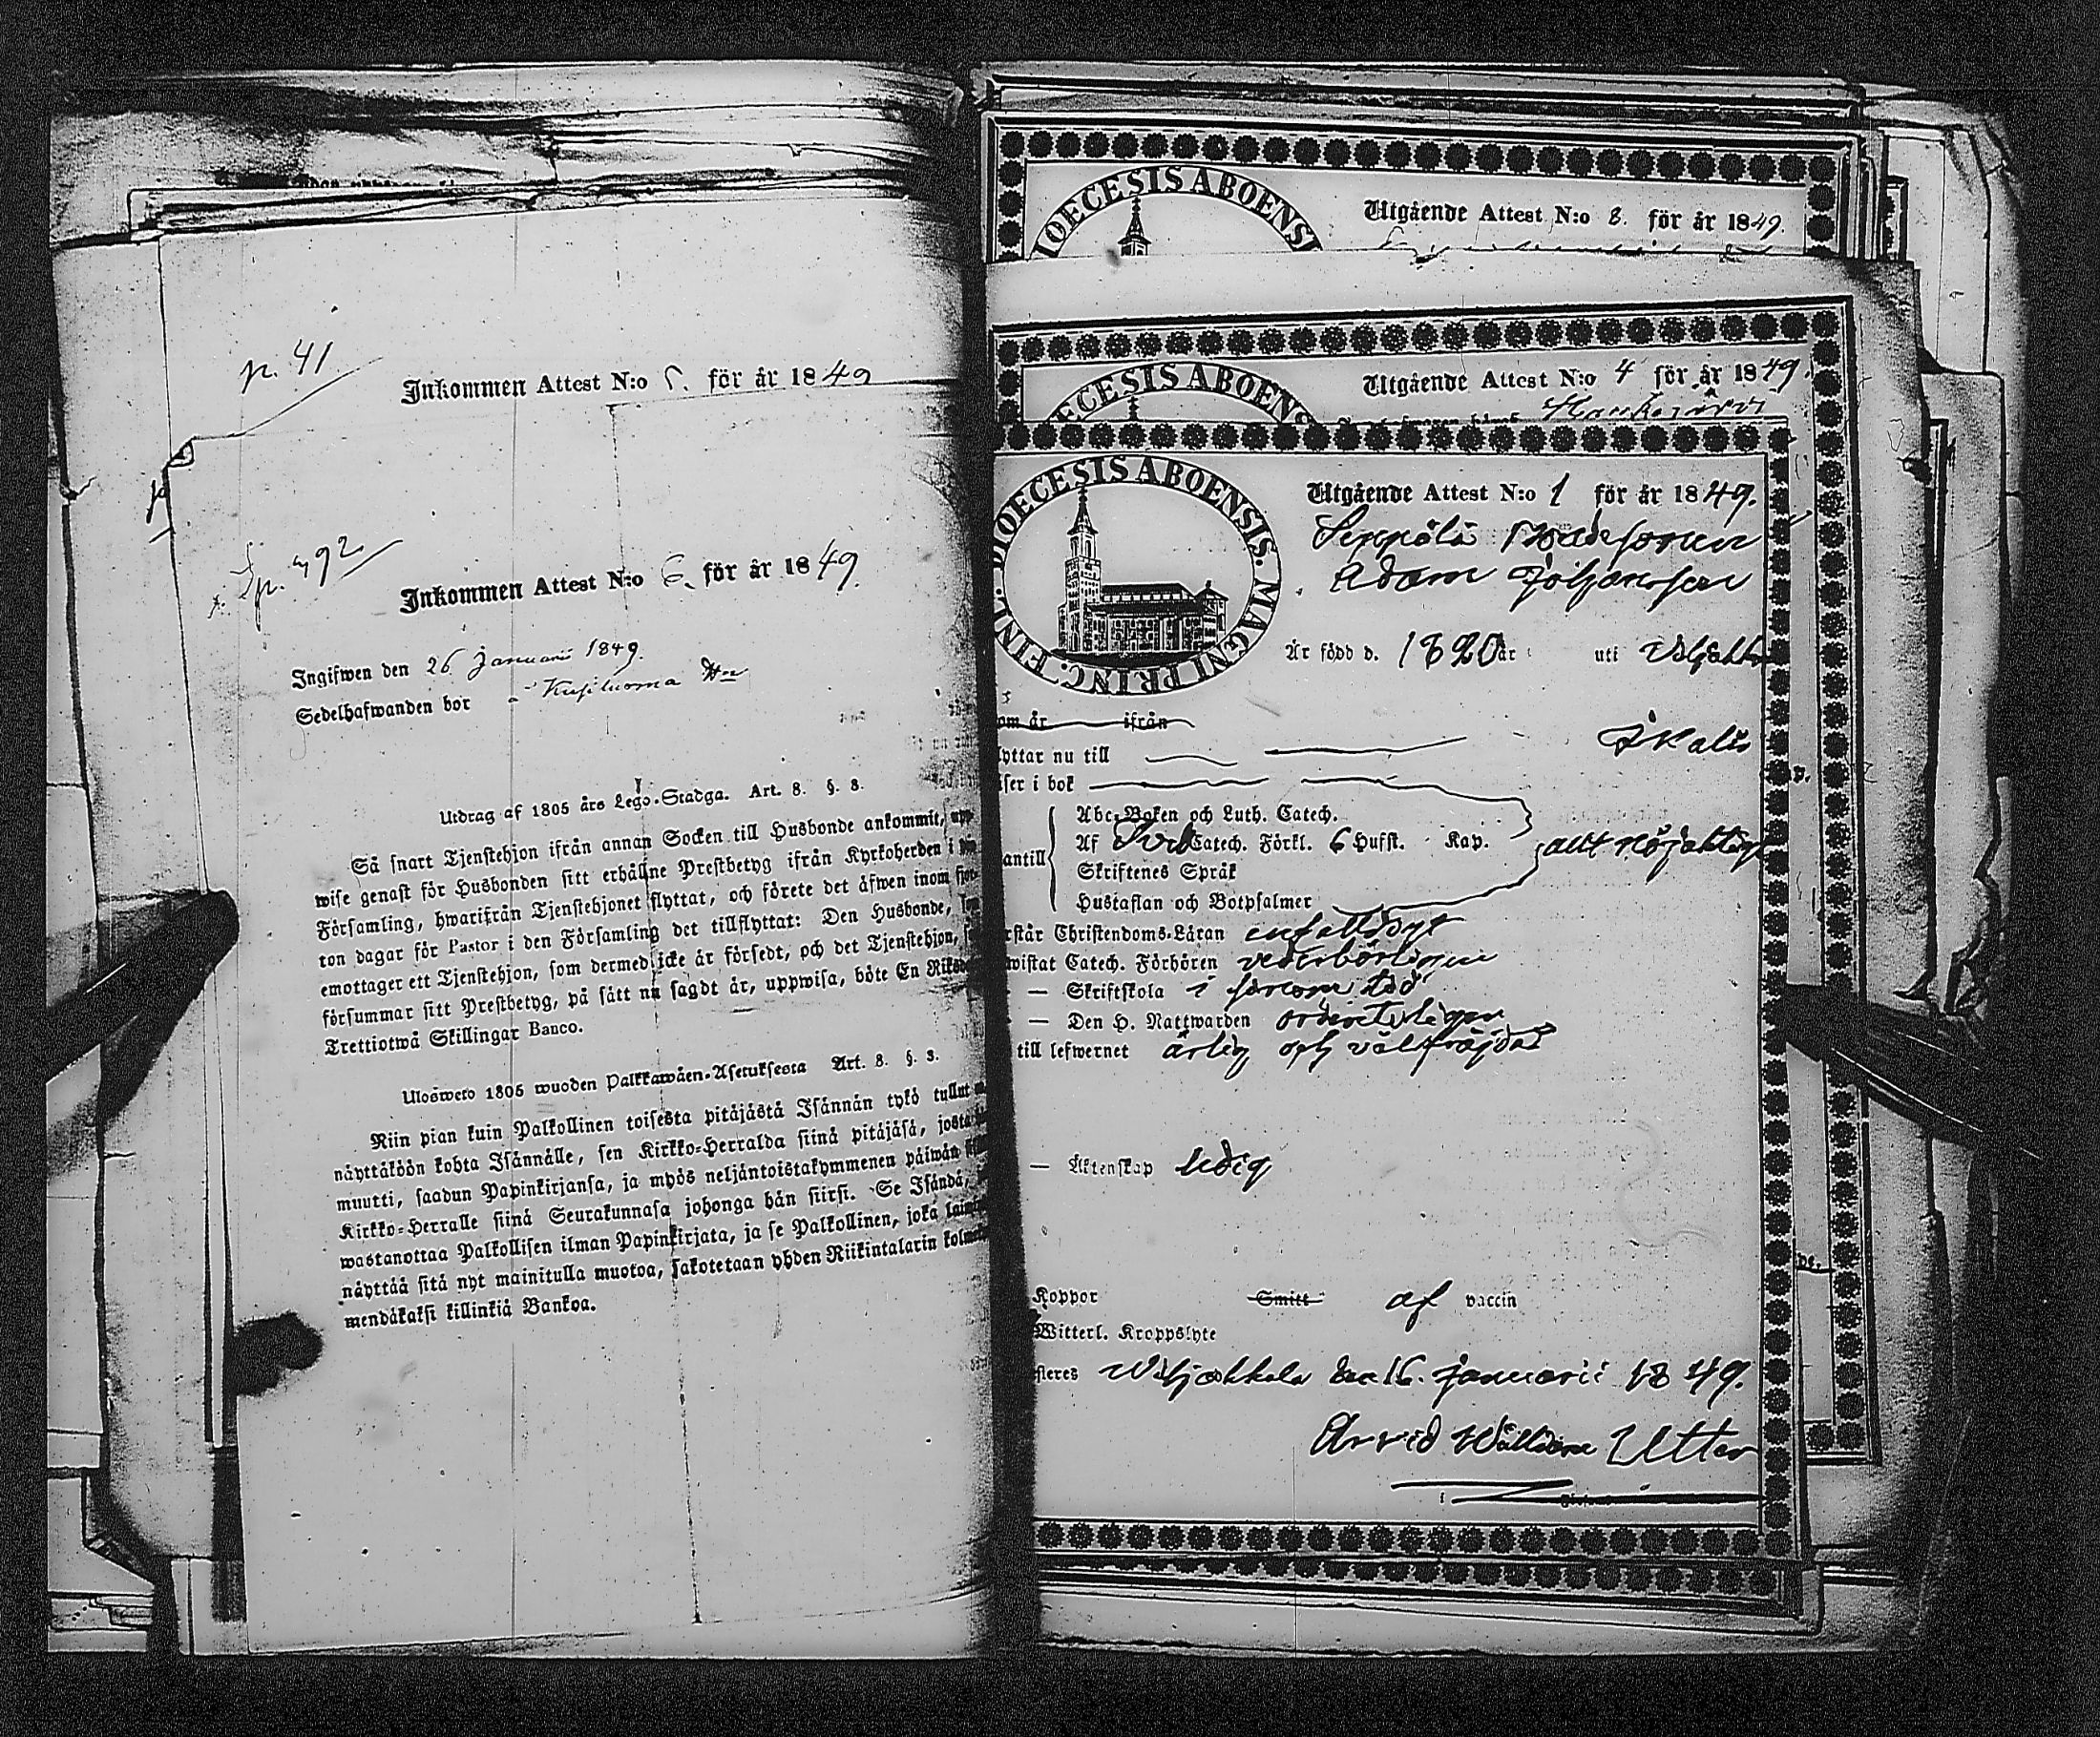 p. 41
Inkommen Attest N:o 5. för år 1849
p. 492
Inkommen Attest N:o 6. för år 1849.
Ingifwen den 26 Januarii 1849.
Sedelhafwanden bor
Utdrag af 1805 års Lego-Stadga. Art. 8. §. 3.
Så snart Tjenstehjon ifrån annan Socken till Husbonde ankommit, upp-
wise genast för Husbonden sitt erhållne Prestbetyg ifrån Kyrkoherden i
Församling, hwarifrån Tjenstehjonet flyttat, och förete det äfwen inom fjor-
ton dagar för Pastor i den Församling det tillflyttat: Den Husbonde, som
emottager ett Tjenstehjon, som dermed icke är försedt, och det Tjenstehjon,
försummar sitt Prestbetyg, på sätt nu sagdt är, uppwisa, böte En Riksd
Trettiotwå Skillingar Banco.
Ulosweto 1805 wuoden Palkkawäen-Asetuksesta Art. 8. §. 3.
Niin pian kuin Palkollinen toisesta pitäjästä Isännän tykö tullut
näyttäköön kohta Isännälle, sen Kirkko-Herralda siinä pitäjäsä, josta
muutti, saadun Papinkirjansa, ja myös neljäntoistakymmenen päiwän
Kirkko-Herralle siinä Seurakunnasa johonga hän siirsi. Se Isändä,
wastanottaa Palkollisen ilman Papinkirjata, ja se Palkollinen, joka
näyttää sitä nyt mainitulla muotoa, sakotetaan yhden Riikintalarin kolme
mendäkaksi killinkiä Bankoa.
DIOECESIS ABOENSIS
Utgående Attest N:o 8. för år 1849.
DIOECESIS ABOENSIS
Utgående Attest N:o 4 för år 1849.
DIOECESIS ABOENSIS. MAGNI PRINC. FINL.
Utgående Attest N:o 1 för år 1849.
Seppälä
Adam Johansson
Är född d. 1820 år uti
om år ifrån
Ikalis
lyttar nu till
iser i bok
Abc-Boken och Luth. Catech.
antill Af Sveb Catech. Förkl. 6 Hufst. Kap. allt nöjaktigt
Skriftenes Språk
Hustaflan och Botpsalmer
rstår Christendoms-Läran enfaldigt
wistat Catech. Förhören vederbörligen
— Skriftskola i förra tid
— Den H. Nattwarden ordenteligen
till lefwernet ärlig och välfräjdad
— Äktenskap ledig
Koppor Smitt af vaccin
Witterl. Kroppslyte
steres Wiljakkala den 16. Januarii 1849.
Arvid Utter
i